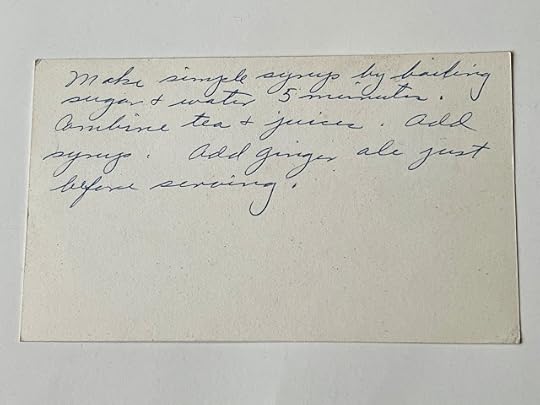 Make simple syrup by boiling
sugar & water 5 minutes.
Combine tea & juices. Add
syrup. Add ginger ale just
before serving.